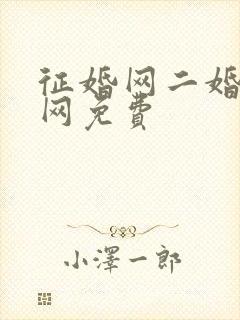 征婚网二婚
网免费
小澤一郎